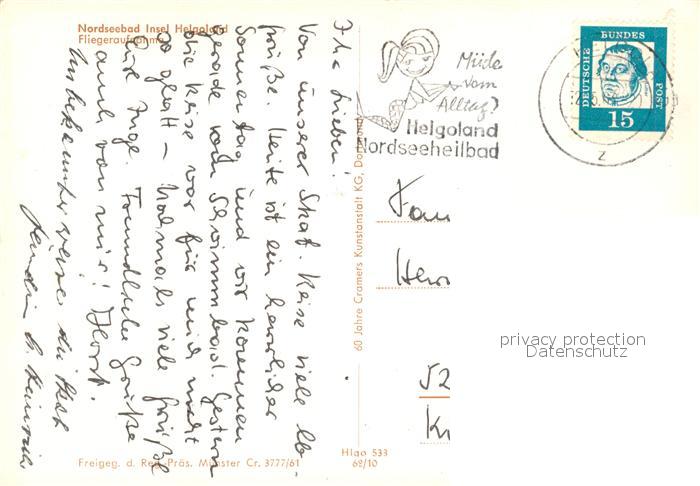 Nordseebad Insel Helgoland
Fliegeraufnahme
Ihr Lieben!
Von unserer Skat-Reise viele lb.
Grüße. Heute ist ein herrlicher
Sonnentag und wir kommen
gerade vom Schwimmbad. Gestern
die Reise war für mich nicht
so glatt – Nochmals viele Grüße
Eure Inge. Freundliche Grüße
auch von mir! Horst.
Unbekannterweise die
60 Jahre Cramers Kunstanstalt KG, Dortmund
Müde
vom
Alltag?
Helgoland
Nordseeheilbad
DEUTSCHE BUNDES POST
15
z
Fam
Herm
52
Kr
privacy protection
Datenschutz
Freigeg. d. Reg. Präs. Münster Cr. 3777/61
Hlgo 533
62/10